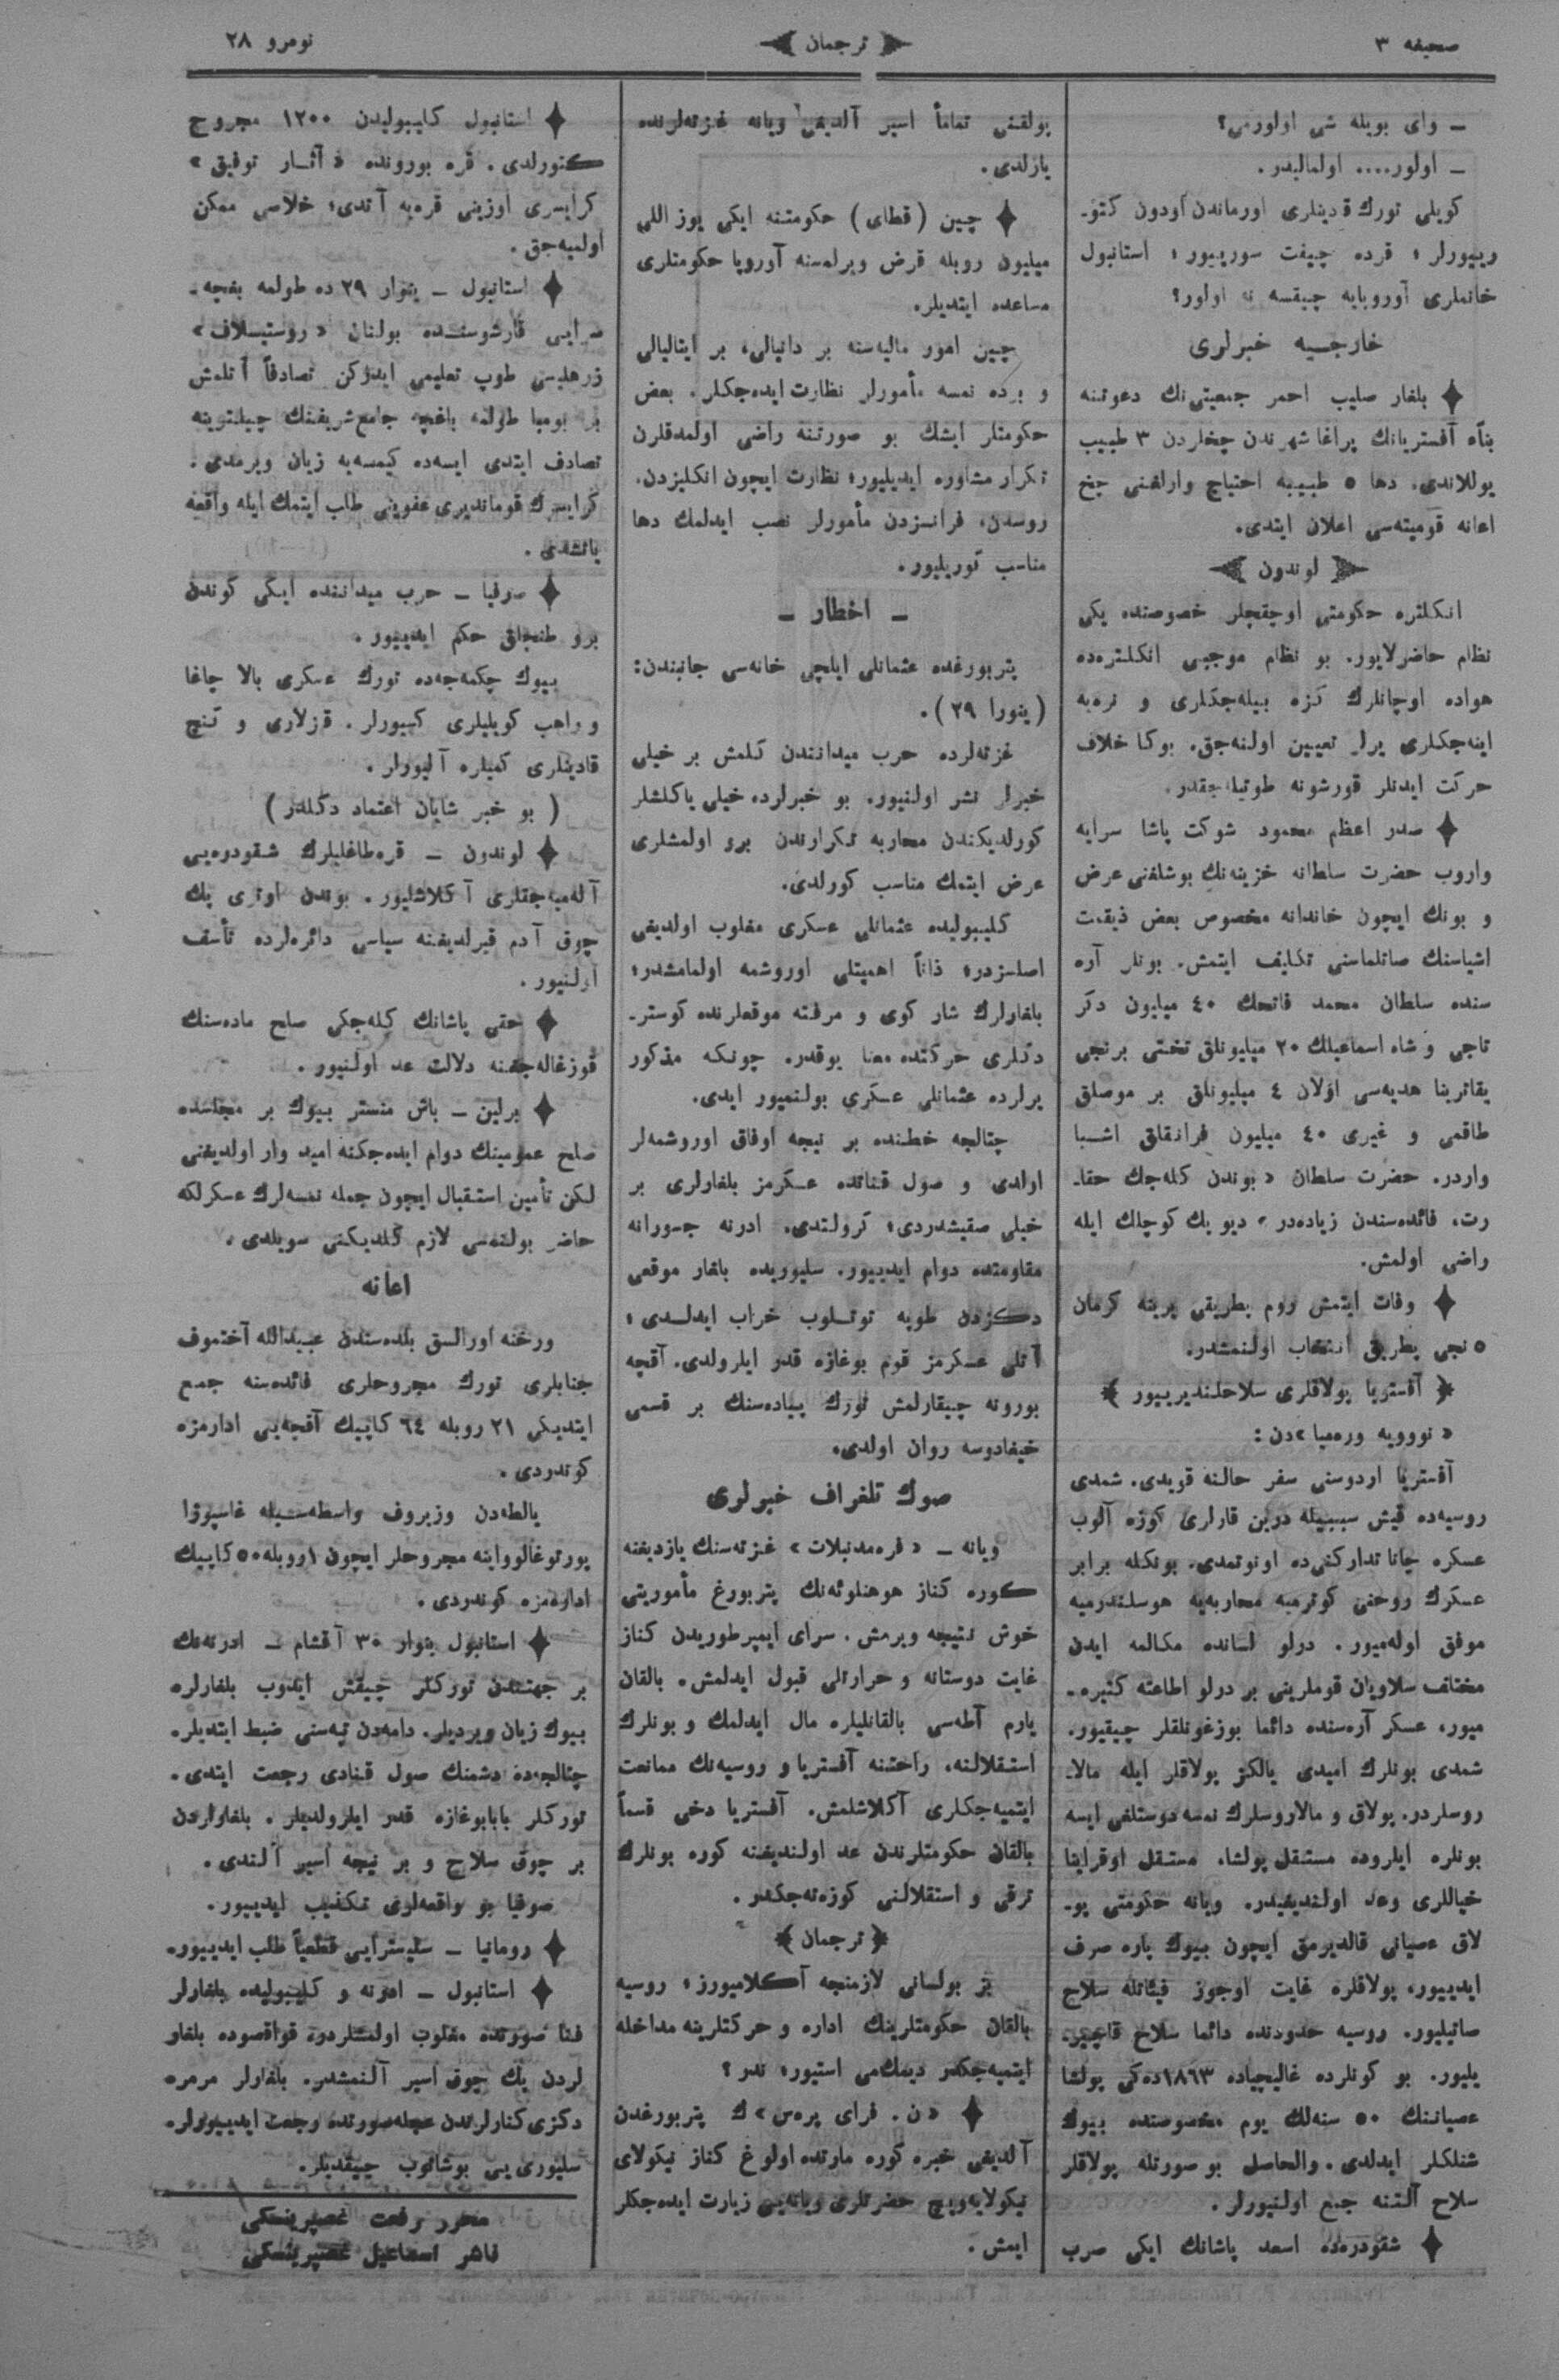 صحيفه ۳
ترجمان
نومرو ۲۸
– وای بویله شی اولورمی؟
– اولور.... اولمالیدر.
کویلی تورك قادینلری اورماندن اودون کتو-
رییورلر؛ قرده چیفت سوریبور؛ استانبول
خانملری آوروپایه چیقسه نه اولور؟
خارجیه خبرلری
بلغار صلیب احمر جمعیتی‌نك دعوتنه
بنآء آفستریانك پراغا شهرندن چخلردن ۳ طبیب
یوللاندی. دها ۵ طبیبه احتیاج وارلغنی چخ
اعانه قومیته‌سی اعلان ایتدی.
لوندون
انکلتره حکومتی اوچقچلر خصوصنده یکی
نظام حاضرلایور. بو نظام موجبی انکلتره‌ده
هواده اوچانلرك کزه بیله‌جکلری و نره‌یه
اینه‌جکلری یرلر تعیین اولنه‌جق. بوکا خلاف
حرکت ایدنلر قورشونه طوتیله‌جقدر.
صدر اعظم محمود شوکت پاشا سرایه
واروب حضرت سلطانه خزینه‌نك بوشلغنی عرض
و بونك ایچون خاندانه مخصوص بعض ذیقمت
اشیاسنك صاتلماسنی تکلیف ایتمش. بونلر آره
سنده سلطان محمد فاتحك ۴۰ میلیون دکر
تاجی و شاه اسماعیلك ۲۰ میلیونلق تختی برنجی
یقاترینا هدیه‌سی اولان ٤ میلیونلق بر موصلق
طاقمی و غیری ۴۰ میلیون فرانقلق اشیا
واردر. حضرت سلطان « بوندن کله‌جك حقا-
رت، فائده‌سندن زیاده‌در » دیو یك کوچلك ایله
راضی اولمش.
وفات ایتمش روم بطریقی یرینه کرمان
۵ نجی بطریق انتخاب اولنمشدر.
﴿ آفستریا پولاقلری سلاحلندیرییور ﴾
« نوویه وره‌میا »دن :
آفستریا اردوسنی سفر حالنه قویدی. شمدی
روسیه‌ده قیش سببیله درین قارلری کوزه آلوب
عسکره چانا تدارکنی‌ده اونوتمدی. بونکله برابر
عسکرك روحنی کوترمبه محاربه‌یه هوسلندرمیه
موفق اوله‌میور. درلو لسانده مکالمه ایدن
مختلف سلاویان قوملرینی بر درلو اطاعته کتیره-
میور، عسکر آره‌سنده دائما بوزغونلقلر چیقیور.
شمدی بونلرك امیدی یالکز پولاقلر ایله مالا-
روسلردر. پولاق و مالاروسلرك نمسه دوستلغی ایسه
بونلره ایلروده مستقل پولشا، مستقل اوقراینا
خیاللری وعد اولندیغیدر. ویانه حکومتی پو-
لاق عصیانی قالدیرمق ایچون بیوك پاره صرف
ایدییور، پولاقلره غایت اوجوز فیئاتله سلاح
صاتیلیور. روسیه حدودنده دائما سلاح قاچیر-
یلیور. بو کونلرده غالیچیاده ۱۸۶۳ده‌کی پولشا
عصیاننك ۵۰ سنه‌لك یوم مخصوصنده بیوك
شنلکلر ایدلدی. والحاصل بو صورتله پولاقلر
سلاح آلتنه جمع اولنیورلر.
شقودره‌ده اسعد پاشانك ایکی صرب
بولغنی تماماً اسیر آلدیغی ویانه غزته‌لرنده
یازلدی.
چین (قطای) حکومتنه ایکی یوز اللی
میلیون روبله قرض ویرلمسنه آوروپا حکومتلری
مساعده ایتدیلر.
چین امور مالیه‌سنه بر دانیالی، بر ایتالیالی
و برده نمسه مأمورلر نظارت ایده‌جکلر. بعض
حکومتلر ایشك بو صورتنه راضی اولمدقلرن
تکرار مشاوره ایدیلیور؛ نظارت ایچون انکلیزدن،
روسدن، فرانسزدن مأمورلر نصب ایدلمك دها
مناسب کوریلیور.
– اخطار –
پتربورغده عثمانلی ایلچی خانه‌سی جانبندن:
(ینورا ۲۹).
غزته‌لرده حرب میدانندن کلمش بر خیلی
خبرلر نشر اولنیور. بو خبرلرده خیلی یاکلشلر
کورلدیکندن محاربه تکرارندن برو اولمشلری
عرض ایتمك مناسب کورلدی.
کلیبولیده عثمانلی عسکری مغلوب اولدیغی
اصلسزدر؛ ذاتاً اهمیتلی اوروشمه اولمامشدر؛
بلغارلرك شار کوی و مرفته موقعلرنده کوستر-
دکلری حرکتده معنا یوقدر. چونکه مذکور
یرلرده عثمانلی عسکری بولنمیور ایدی.
چتالجه خطنده بر نیچه اوفاق اوروشمه‌لر
اولدی و صول قنانده عسکرمز بلغارلری بر
خیلی صقیشدردی؛ کرولتدی. ادرنه جسورانه
مقاومتده دوام ایدییور. سلیوریده بلغار موقعی
دکزدن طوپه توتلوب خراب ایدلدی؛
آتلی عسکرمز قوم بوغازه قدر ایلرولدی. آقچه
بورونه چیقارلمش تورك پیاده‌سنك بر قسمی
خیفادوسه روان اولدی.
صوك تلغراف خبرلری
ویانه – « فره‌مدنبلات » غزته‌سنك یازدیغنه
کوره کناز هوهنلوئه‌نك پتربورغ مأموریتی
خوش نتیجه ویرمش. سرای ایمپرطوریدن کناز
غایت دوستانه و حرارتلی قبول ایدلمش. بالقان
یارم آطه‌سی بالقانلیلره مال ایدلمك و بونلرك
استقلالنه، راحتنه آفستریا و روسیه‌نك ممانعت
ایتمیه‌جکلری آکلاشلمش. آفستریا دخی قسماً
بالقان حکومتلرندن عد اولندیغنه کوره بونلرك
ترقی و استقلالنی کوزه‌ته‌جکدر.
﴿ ترجمان ﴾
بز بولسانی لازمنجه آکلامیورز؛ روسیه
بالقان حکومتلرینك اداره و حرکتلرینه مداخله
ایتمیه‌جکدر دیمك‌می استیور؛ ندر؟
« ن. فرای پره‌س »ك پتربورغدن
آلدیغی خبره کوره مارتده اولوغ کناز نیکولای
نیکولایه‌ویچ حضرتلری ویانه‌یی زیارت ایده‌جکلر
ایمش.
استانبول کلیبولیدن ۱۲۰۰ مجروح
کتورلدی. قره بورونده « آثار توفیق »
کرایسری اوزینی قره‌یه آتدی؛ خلاصی ممکن
اولمیه‌جق.
استانبول – ینوار ۲۹ ده طولمه بغچه-
سرایی قارشوسنده بولنان « روستیسلاف »
زرهلیسی طوپ تعلیمی ایدرکن تصادفاً آتلمش
بر بومبا طولمه باغچه جامع شریفنك چیلتوینه
تصادف ایتدی ایسه‌ده کیمسه‌یه زیان ویرمدی.
کرایسرك قوماندیری عفوینی طلب ایتمك ایله واقعه
یاتشدی.
صوفیا – حرب میداننده ایکی کوندن
برو طنجلق حکم ایدییور.
بیوك چکمه‌جه‌ده تورك عسکری بالا چاغا
و راهب کویلیلری کسیورلر. قزلاری و کنچ
قادینلری کمیلره آلیورلر.
( بو خبر شایان اعتماد دکلدر)
لوندون – قره‌طاغلیلرك شقودره‌یی
آله‌میه‌جقلری آکلاشلیور. بوندن اوتری پك
چوق آدم قیرلدیغنه سیاسی دائره‌لرده تأسف
اولنیور.
حقی پاشانك کله‌جکی صلح ماده‌سنك
قوزغاله‌جغنه دلالت عد اولنیور.
برلین – باش منستر بیوك بر مجلسده
صلح عمومینك دوام ایده‌جکنه امید وار اولدیغنی
لکن تأمین استقبال ایچون جمله نمسه‌لرك عسکرلکه
حاضر بولنمه‌سی لازم کلدیکنی سویلدی.
اعانه
ورخنه اورالسق بلده‌سندن عبدالله آختموف
جنابلری تورك مجروحلری فائده‌سنه جمع
ایتدیکی ۲۱ روبله ٦٤ کاپیك آقچه‌یی ادارمزه
کوندردی.
یالطه‌دن وزیروف واسطه‌سیله غاسپوژا
پورتوغالوواینه مجروحلر ایچون ۱ روبله ۵۰ کاپیك
اداره‌مزه کوندردی.
استانبول ینوار ۳۰ آقشام – ادرنه‌نك
بر جهتندن تورکلر چیقش ایدوب بلغارلره
بیوك زیان ویردیلر. دامه‌دن تپه‌سنی ضبط ایتدیلر.
چتالجه‌ده دشمنك صول قنادی رجعت ایتدی.
تورکلر بابابوغازه قدر ایلرولدیلر. بلغارلردن
بر چوق سلاح و بر نیچه اسیر آلندی.
صوفیا بو واقعه‌لری تکذیب ایدییور.
رومانیا – سلیسترایی قطعیاً طلب ایدییور.
استانبول – ادرنه و کلیبولیده بلغارلر
فنا صورتده مغلوب اولمشلردر، قواقصوده بلغار
لردن پك چوق اسیر آلنمشدر. بلغارلر مرمره
دکزی کنارلرندن عجله صورتده رجعت ایدییورلر.
سلیوری‌یی بوشاتوب چیقدیلر.
محرر رفعت غصپرینسکی
ناشر اسماعیل غصپرینسکی